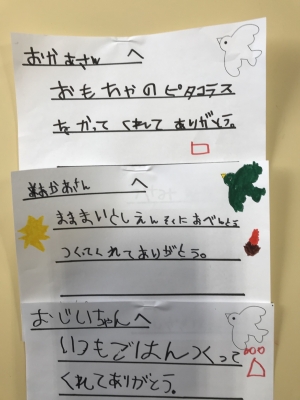 おかあさん へ
おもちゃの ピタゴラス
をかって くれて ありがとう。
おかあさん へ
まままいとし えんそくに おべんとう
つくてくれてありがとう。
おじいちゃんへ
いつもごはんつくって
くれてありがとう。